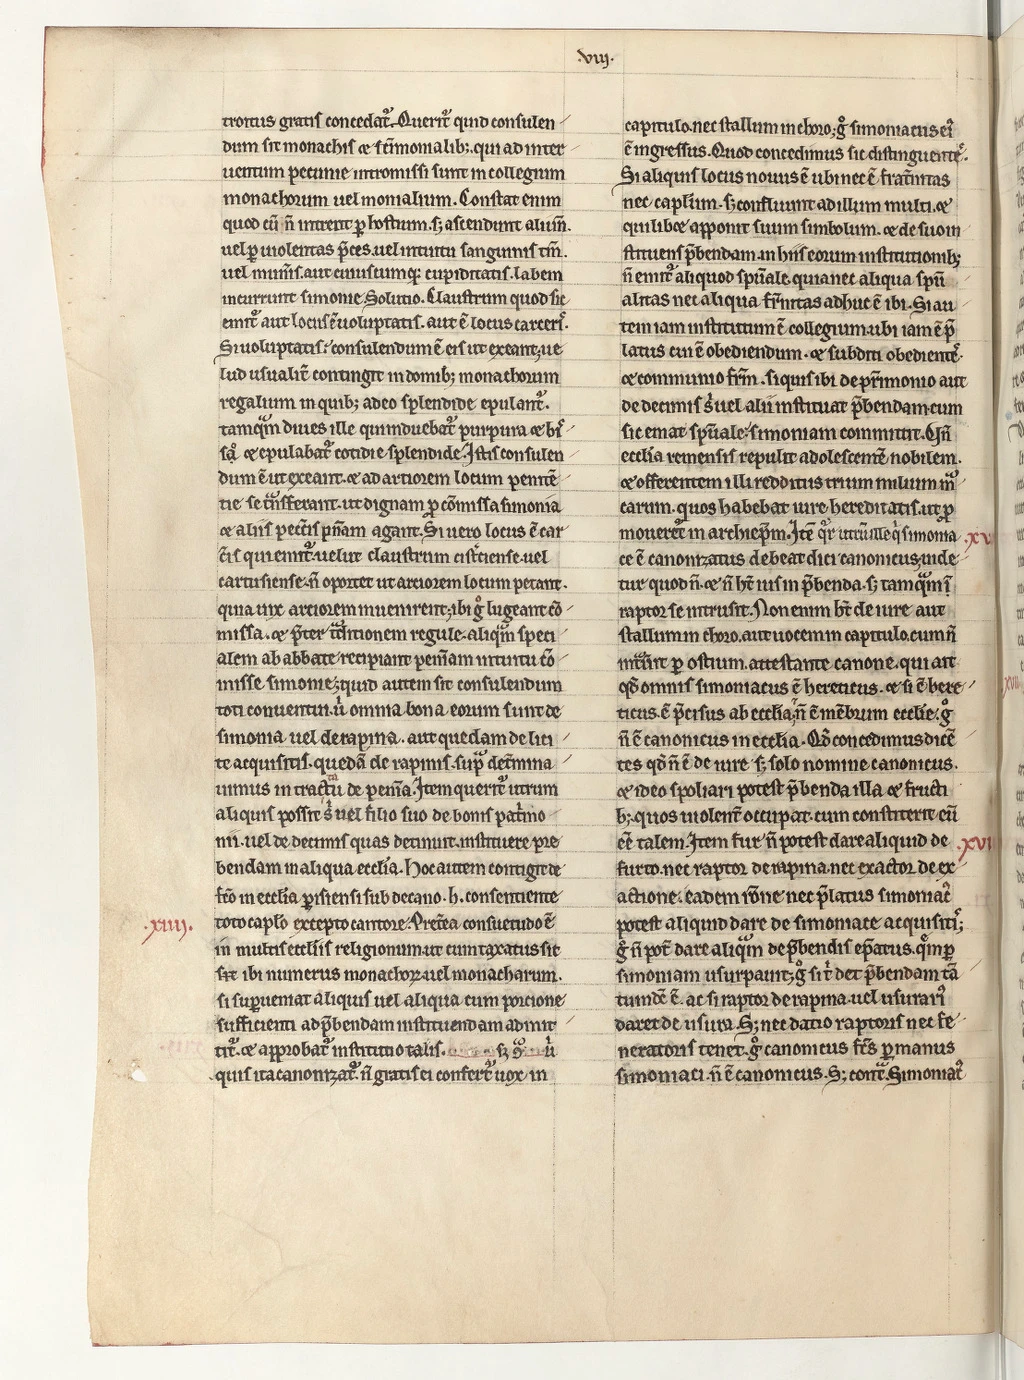 .viij.
troitus gratis concedat᷑. Querit᷑ quid consulen
dum sit monachis ⁊ sc̄imonialib;. qui ad inter
uentum pecunie intromissi sunt in collegium
monachorum uel monialium. Constat enim
quod cū n̄ intrent ꝑ hostium. s; ascendunt aliun̄.
uel ꝑ uiolentas p̄ces. uel intuitu sanguinis tm̄.
uel mun̄is. aut cuiuscumq; cupiditatis. labem
incurrunt simonie. Solutio. Claustrum quod sic
emit᷑ aut locus ē uoluptatis. aut ē locus carceris.
Si uoluptatis: consulendum ē eis ut exeant; ue
lud usualit̄ contingit in domib; monachorum
regalium in quib; adeo splendide epulant᷑.
tamq̄m diues ille qui induebat᷑ purpura ⁊ bis
sa. ⁊ epulabat᷑ cotidie splendide. Istis consulen
dum ē ut exeant. ⁊ ad artiorem locum peniten
tie se tᷓnsferant. ut dignam ꝑ cōmissa simonia
⁊ aliis pecc̄is pn̄iam agant. Si uero locus ē car
c̄is qui emit᷑ uelut claustrum cist̄ciense. uel
cartusiense. n̄ oportet ut artiorem locum petant.
quia uix artiorem inuenirent; ibi gͦ lugeant cō
missa. ⁊ p̄ter t̄ditionem regule. aliq̄m speci
alem ab abbate recipiant pen̄iam intuitu cō
misse simonie; quid autem sit consulendum
toti conuentui. u᷑ omnia bona eorum sunt de
simonia uel de rapina. aut quedam de lici
te acquisitis. quedā de rapinis. supͣ det̄mina
uimus in tractatu de pen̄ia. Item querit᷑ utrum
aliquis possit s; uel filio suo de bonis pat̄mo
nii. uel de decimis quas detinuit. instituere pre
bendam in aliqua ecclīa. Hoc autem contigit de
fc̄o in ecclīa ꝑisiensi sub decano .h. consentiente
toto capl̄o excepto cantore. Pret̄ea consuetudo ē
.xiiij.
in multis ecclīis religionum. ut cum taxatus sit
ibi numerus monachoꝝ uel monacharum.
si suꝑueniat aliquis uel aliqua cum porcione
sufficienti ad p̄bendam instituendam admit
tit᷑. ⁊ approbat᷑ institutio talis. s; gͦ u᷑
quis ita canonizat᷑. n̄ gratis ei confert᷑ uox in
capitulo. nec stallum in choro; gͦ simoniacus ei᷑
ē ingressus. Quod concedimus sic distinguentes.
Si aliquis locus nouus ē ubi nec ē frat̄nitas
nec capl̄um. s; confluunt ad illum multi. ⁊
quilibet apponit suum simbolum. ⁊ de suo in
stituens p̄bendam. in hiis eorum institutionib;
n̄ emit᷑ aliquod spūale. quia nec aliqua spū
alitas nec aliqua fr̄nitas adhuc ē ibi. Si au
tem iam institutum ē collegium. ubi iam ē p̄
latus cui ē obediendum. ⁊ subditi obedientes.
⁊ communio fr̄m. si quis ibi de pr̄imonio aut
de decimis s; uel alii instituat p̄bendam. cum
sic emat spūale: simoniam committit. Vn̄
ecclīa remensis repulit adolescentē nobilem.
⁊ offerentem illi redditus trium milium mᷓ
carum. quos habebat iure hereditatis. ut ꝓ
moueret᷑ in archiep̄m. Itē qͬr utrū ille q̇ simonia
.xv.
ce ē canonizatus debeat dici canonicus; uide
tur quod n̄. ⁊ n̄ ht̄ ius in p̄benda. s; tamq̄m
raptor se intrusit. Non enim ht̄ de iure aut
stallum in choro. aut uocem in capitulo. cum n̄
int̄uit ꝑ ostium. attestante canone. qui ait
qd̄ omnis simoniacus ē hereticus. ⁊ si ē here
ticus. ē p̄cisus ab ecclīa; n̄ ē mēbrum ecclīe. gͦ
n̄ ē canonicus in ecclīa. Qd̄ concedimus dicē
tes qd̄ n̄ ē de iure s; solo nomine canonicus.
⁊ ideo spoliari potest p̄benda illa ⁊ fructi
b;. quos uiolent᷑ occupat. cum constiterit eū
eē talem. Item fur n̄ potest dare aliquid de
.xvi.
furto. nec raptor de rapina. nec exactor de ex
actione. eadem rōne nec p̄latus simoniac᷑
potest aliquid dare de simoniace acquisitis;
gͦ n̄ pot̄ dare aliq̄m de p̄bendis ep̄atus. quem ꝑ
simoniam usurpauit; gͦ si det p̄bendam tā
tumdē ē. ac si raptor de rapina uel usurari᷑
daret de usura. S; nec datio raptoris nec fe
neratoris tenet. gͦ canonicus fc̄s ꝑ manus
simoniaci. n̄ ē canonicus. S; contᷓ. Simoniac᷑